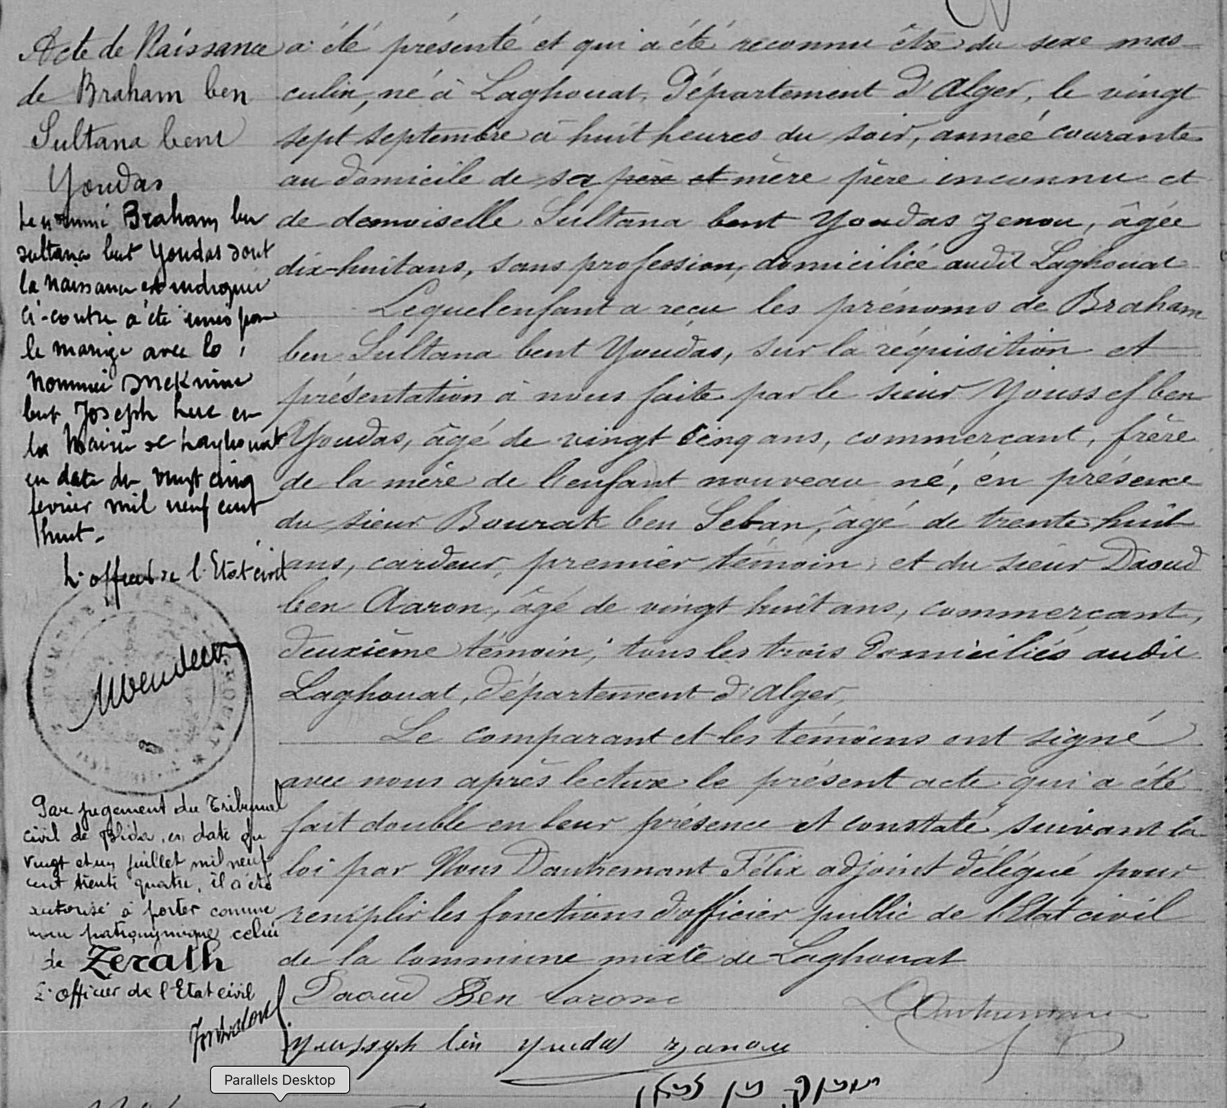 Acte de Naissance
de Braham ben
Sultana bent
Youdas
Le nommé Braham ben
sultana bent Youdas dont
la naissance est indiquée
ci-contre a été unis par
le mariage avec la
nommée Meknine
bent Joseph Luc en
la Mairie de Laghouat
en date du vingt cinq
fevrier mil neuf cent
huit.
L'officier de l'Etat civil
Par jugement du Tribunal
civil de Blida, en date du
vingt et un juillet mil neuf
cent trente quatre, il a été
autorisé à porter comme
nom patronymique celui
de Zerath
L'officier de l'Etat civil
a été présenté et qui a été reconnu être du sexe mas-
culin, né à Laghouat, Département d'Alger, le vingt
sept septembre à huit heures du soir, année courante
au domicile de sa père et mère père inconnu et
de demoiselle Sultana bent Youdas Zenou, âgée
dix-huit ans, sans profession, domiciliée audit Laghouat
Lequel enfant a reçu les prénoms de Braham
ben Sultana bent Youdas, sur la réquisition et
présentation à nous faite par le sieur Youssef ben
Youdas, âgé de vingt cinq ans, commerçant, frère
de la mère de l'enfant nouveau né, en présence
du sieur Bourak ben Seban, âgé de trente huit
ans, cardeur, premier témoin; et du sieur Daoud
ben Aaron, âgé de vingt huit ans, commerçant,
deuxième témoin; tous les trois domiciliés audit
Laghouat, département d'Alger,
Le comparant et les témoins ont signé
avec nous après lecture le présent acte qui a été
fait double en leur présence et constaté suivant la
loi par Nous Dautremant Félix adjoint délégué pour
remplir les fonctions d'officier public de l'Etat civil
de la Commune mixte de Laghouat
Daoud Ben
Youdas Zanou
Parallels Desktop